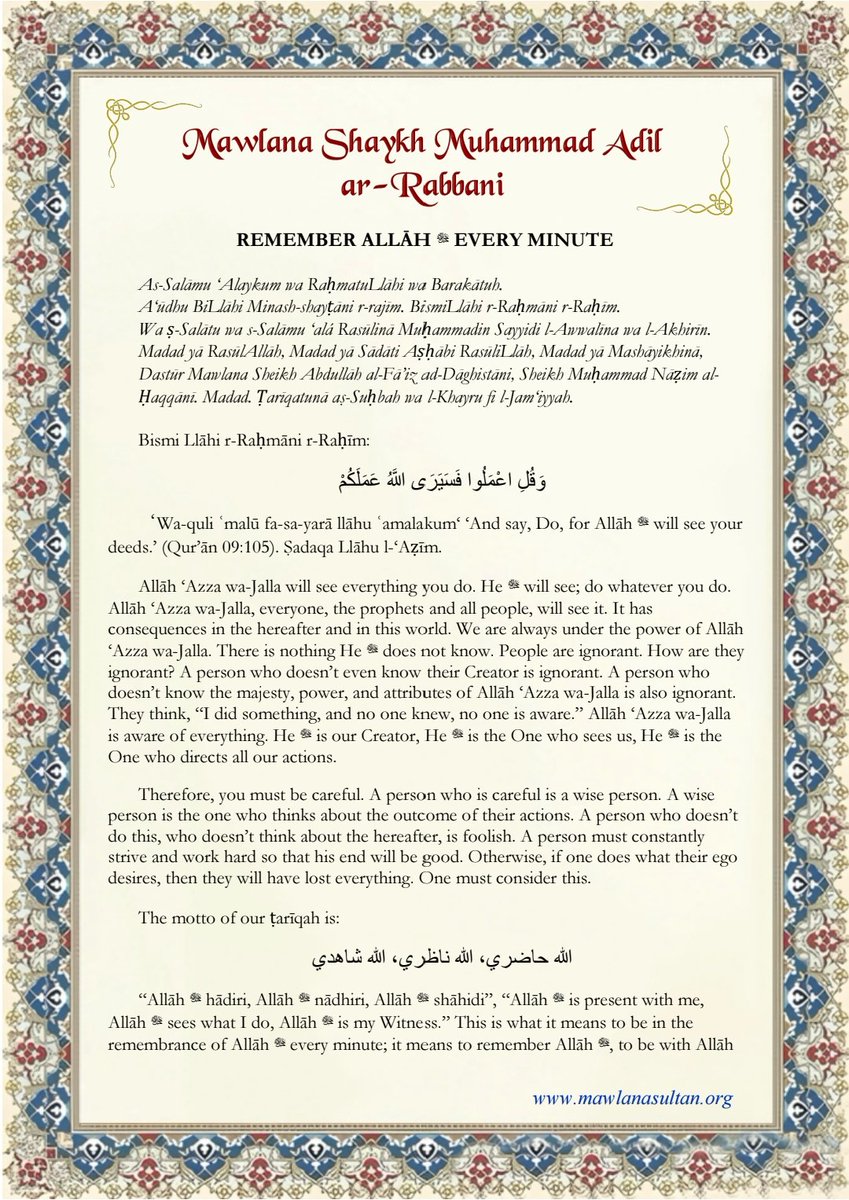 Mawlana Shaykh Muhammad Adil
ar-Rabbani
REMEMBER ALLĀH ﷻ EVERY MINUTE
As-Salāmu ‘Alaykum wa RaḥmatuLlāhi wa Barakātuh.
A‘ūdhu BiLlāhi Minash-shayṭāni r-rajīm. BismiLlāhi r-Raḥmāni r-Raḥīm.
Wa ṣ-Salātu wa s-Salāmu ‘alá Rasūlinā Muḥammadin Sayyidi l-Awwalīna wa l-Akhirīn.
Madad yā RasūlAllāh, Madad yā Sādāti Aṣḥābi RasūliLlāh, Madad yā Mashāyikhinā,
Dastūr Mawlana Sheikh Abdullāh al-Fā’iz ad-Dāghistāni, Sheikh Muḥammad Nāẓim al-
Ḥaqqānī. Madad. Ṭarīqatunā aṣ-Suḥbah wa l-Khayru fi l-Jam‘iyyah.
Bismi Llāhi r-Raḥmāni r-Raḥīm:
وَقُلِ اعْمَلُوا فَسَيَرَى اللَّهُ عَمَلَكُمْ
‘Wa-quli ʿmalū fa-sa-yarā llāhu ʿamalakum‘ ‘And say, Do, for Allāh ﷻ will see your
deeds.’ (Qur’ān 09:105). Ṣadaqa Llāhu l-‘Aẓīm.
Allāh ‘Azza wa-Jalla will see everything you do. He ﷻ will see; do whatever you do.
Allāh ‘Azza wa-Jalla, everyone, the prophets and all people, will see it. It has
consequences in the hereafter and in this world. We are always under the power of Allāh
‘Azza wa-Jalla. There is nothing He ﷻ does not know. People are ignorant. How are they
ignorant? A person who doesn’t even know their Creator is ignorant. A person who
doesn’t know the majesty, power, and attributes of Allāh ‘Azza wa-Jalla is also ignorant.
They think, “I did something, and no one knew, no one is aware.” Allāh ‘Azza wa-Jalla
is aware of everything. He ﷻ is our Creator, He ﷻ is the One who sees us, He ﷻ is the
One who directs all our actions.
Therefore, you must be careful. A person who is careful is a wise person. A wise
person is the one who thinks about the outcome of their actions. A person who doesn’t
do this, who doesn’t think about the hereafter, is foolish. A person must constantly
strive and work hard so that his end will be good. Otherwise, if one does what their ego
desires, then they will have lost everything. One must consider this.
The motto of our ṭarīqah is:
الله حاضري، الله ناظري، الله شاهدي
“Allāh ﷻ hādiri, Allāh ﷻ nādhiri, Allāh ﷻ shāhidi”, “Allāh ﷻ is present with me,
Allāh ﷻ sees what I do, Allāh ﷻ is my Witness.” This is what it means to be in the
remembrance of Allāh ﷻ every minute; it means to remember Allāh ﷻ, to be with Allāh
www.mawlanasultan.org